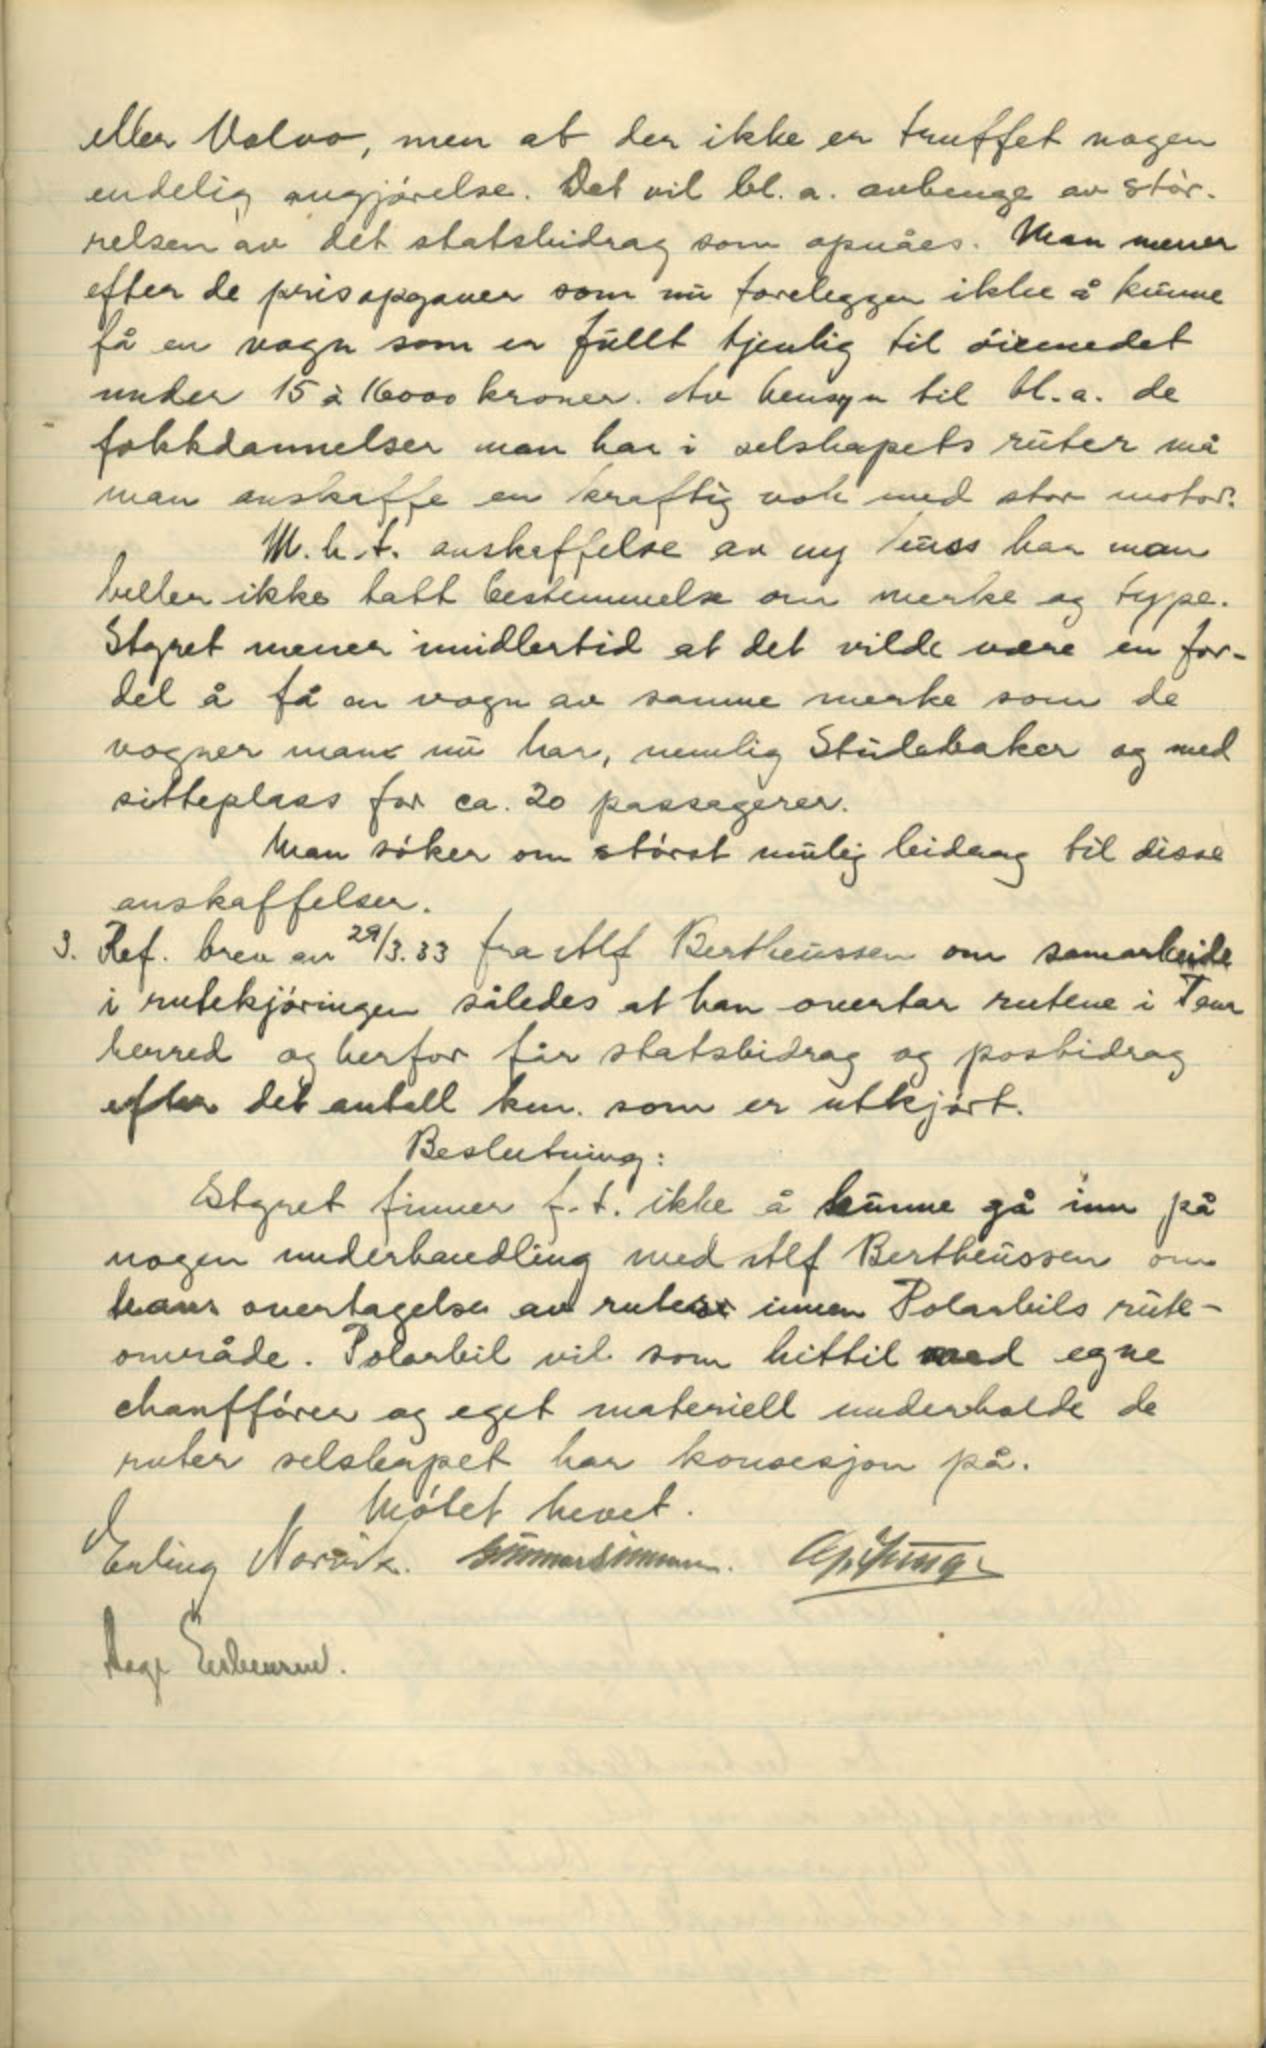 eller Volvo, men at der ikke er truffet nogen
endelig avgjörelse. Det vil bl. a. avhenge av stör-
relsen av det statsbidrag som opnåes. Man mener
efter de prisopgaver som nu foreligger ikke å kunne
få en vogn som er fullt tjenlig til öiemedet
under 15 à 16000 kroner. Av hensyn til bl. a. de
fokkdannelser man har i selskapets ruter må
man anskaffe en kraftig vok med stor motor.
M. h. t. anskaffelse av ny buss har man
heller ikke tatt bestemmelse om merke og type.
Styret mener imidlertid at det vilde være en for-
del å få en vogn av samme merke som de
vogner man nu har, nemlig Studebaker og med
sitteplass for ca. 20 passagerer.
Man söker om störst mulig bidrag til disse
anskaffelser.
3. Ref. brev av 29/3.33 fra Alf Bertheussen om samarbeide
i rutekjöringen således at han overtar rutene i Tana
herred og herfor får statsbidrag og postbidrag
efter det antall km. som er utkjört.
Beslutning:
Styret finner f. t. ikke å kunne gå inn på
nogen underhandling med Alf Bertheussen om
hans overtagelse av ruter innen Polarbils rute-
område. Polarbil vil som hittil med egne
chaufförer og eget materiell underholde de
ruter selskapet har konsesjon på.
Mötet hevet.
Erling Norvik. Gunnar Simonsen.
Aage